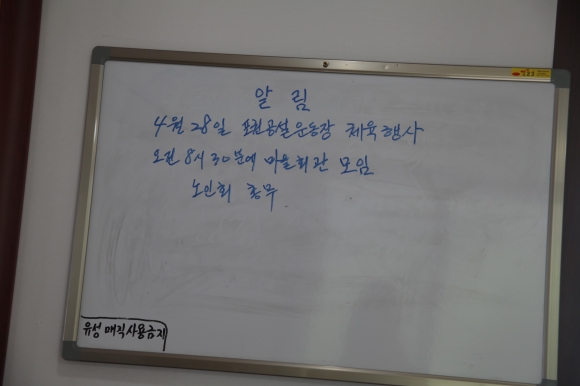 알 림
4월 28일 포천공설운동장 체육행사
오전 8시 30분에 마을회관 모임
노인회 총무
유성 매직사용금지